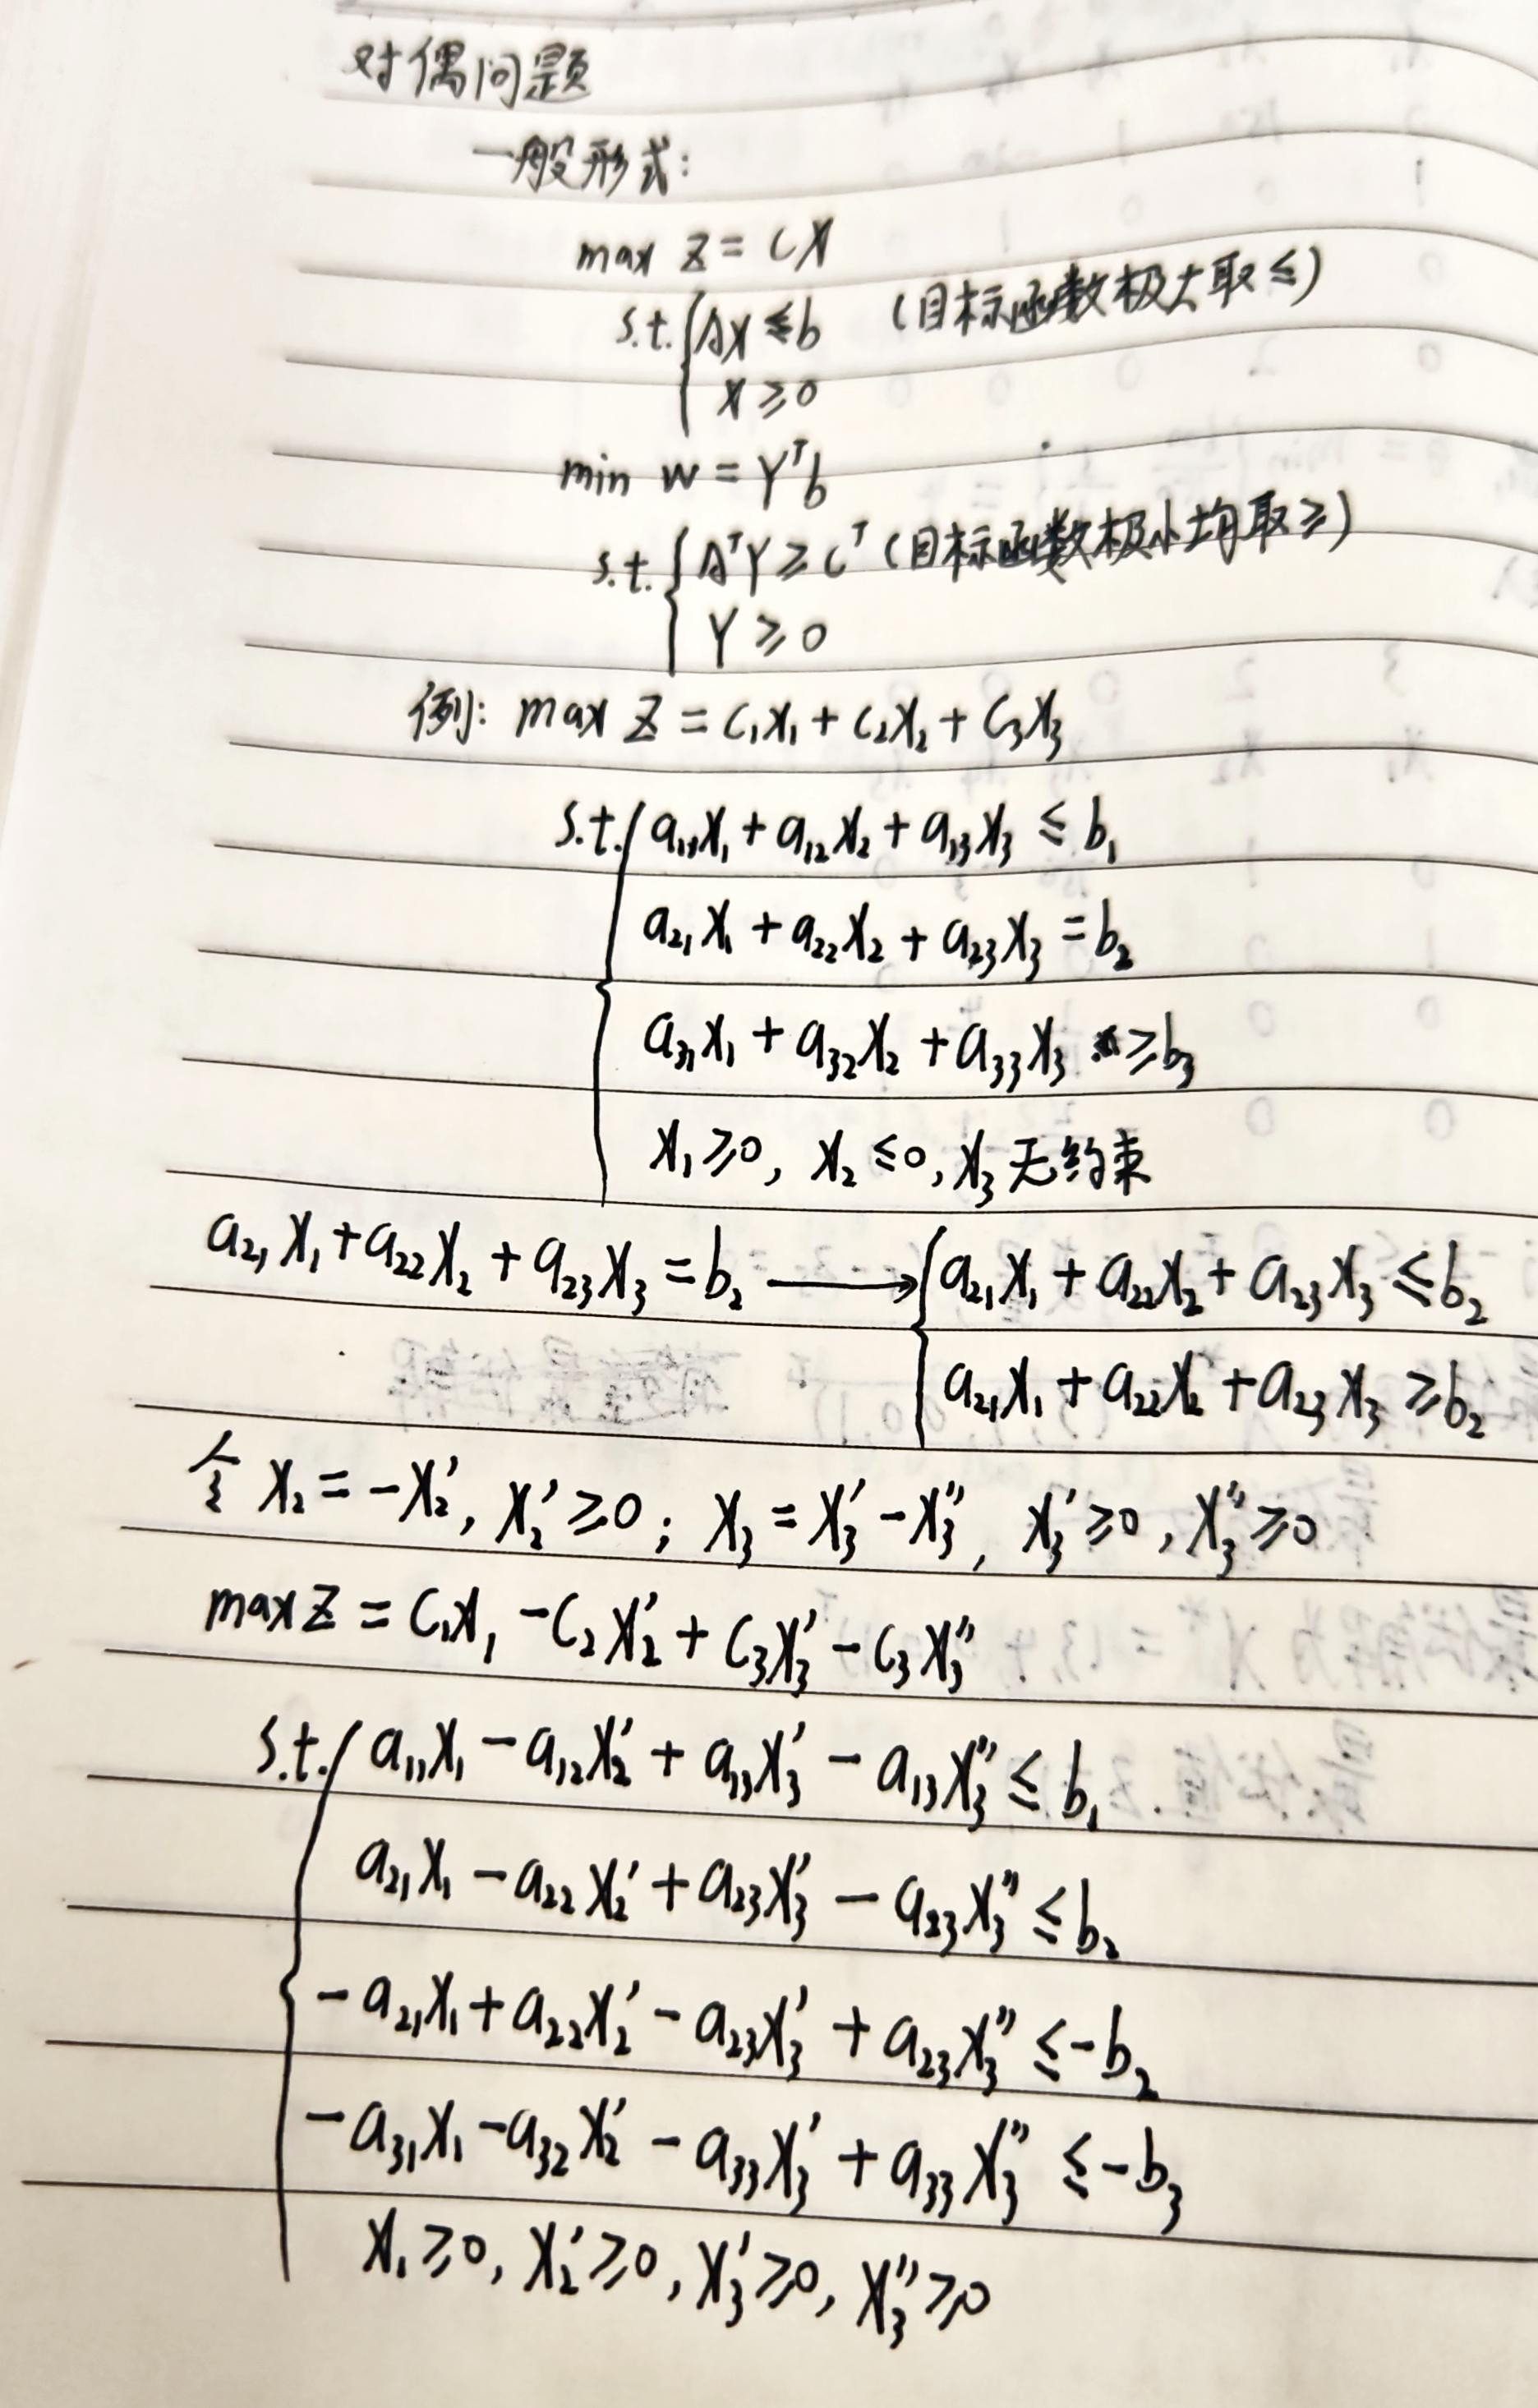 对偶问题
一般形式:
max z = CX
s.t. { AX ≤ b (目标函数极大取≤)
X ≥ 0
min w = Yᵀb
s.t. { AᵀY ≥ Cᵀ (目标函数极小均取≥)
Y ≥ 0
例: max z = c₁x₁ + c₂x₂ + c₃x₃
s.t. { a₁₁x₁ + a₁₂x₂ + a₁₃x₃ ≤ b₁
a₂₁x₁ + a₂₂x₂ + a₂₃x₃ = b₂
a₃₁x₁ + a₃₂x₂ + a₃₃x₃ ≥ b₃
x₁ ≥ 0, x₂ ≤ 0, x₃ 无约束
a₂₁x₁ + a₂₂x₂ + a₂₃x₃ = b₂ → { a₂₁x₁ + a₂₂x₂ + a₂₃x₃ ≤ b₂
a₂₁x₁ + a₂₂x₂ + a₂₃x₃ ≥ b₂
令 x₂ = -x₂', x₂' ≥ 0; x₃ = x₃' - x₃'', x₃' ≥ 0, x₃'' ≥ 0
max z = c₁x₁ - c₂x₂' + c₃x₃' - c₃x₃''
s.t. { a₁₁x₁ - a₁₂x₂' + a₁₃x₃' - a₁₃x₃'' ≤ b₁
a₂₁x₁ - a₂₂x₂' + a₂₃x₃' - a₂₃x₃'' ≤ b₂
-a₂₁x₁ + a₂₂x₂' - a₂₃x₃' + a₂₃x₃'' ≤ -b₂
-a₃₁x₁ - a₃₂x₂' - a₃₃x₃' + a₃₃x₃'' ≤ -b₃
x₁ ≥ 0, x₂' ≥ 0, x₃' ≥ 0, x₃'' ≥ 0